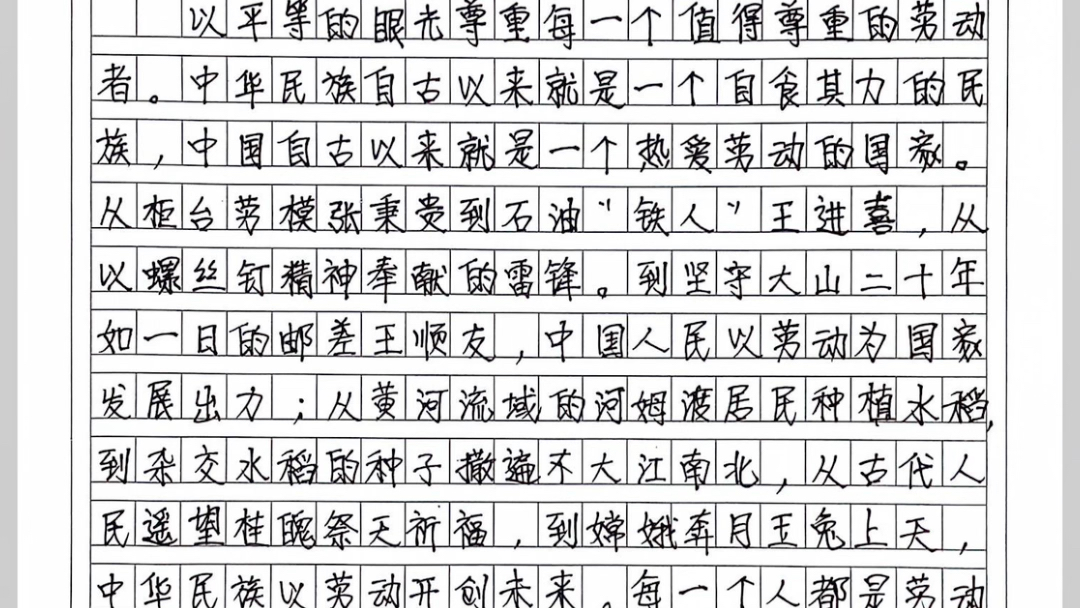 以平等的眼光尊重每一个值得尊重的劳动
者。中华民族自古以来就是一个自食其力的民
族,中国自古以来就是一个热爱劳动的国家。
从柜台劳模张秉贵到石油“铁人”王进喜,从
以螺丝钉精神奉献的雷锋。到坚守大山二十年
如一日的邮差王顺友,中国人民以劳动为国家
发展出力;从黄河流域的河姆渡居民种植水稻,
到杂交水稻的种子撒遍不大江南北,从古代人
民遥望桂魄祭天祈福,到嫦娥奔月玉兔上天,
中华民族以劳动开创未来。每一个人都是劳动